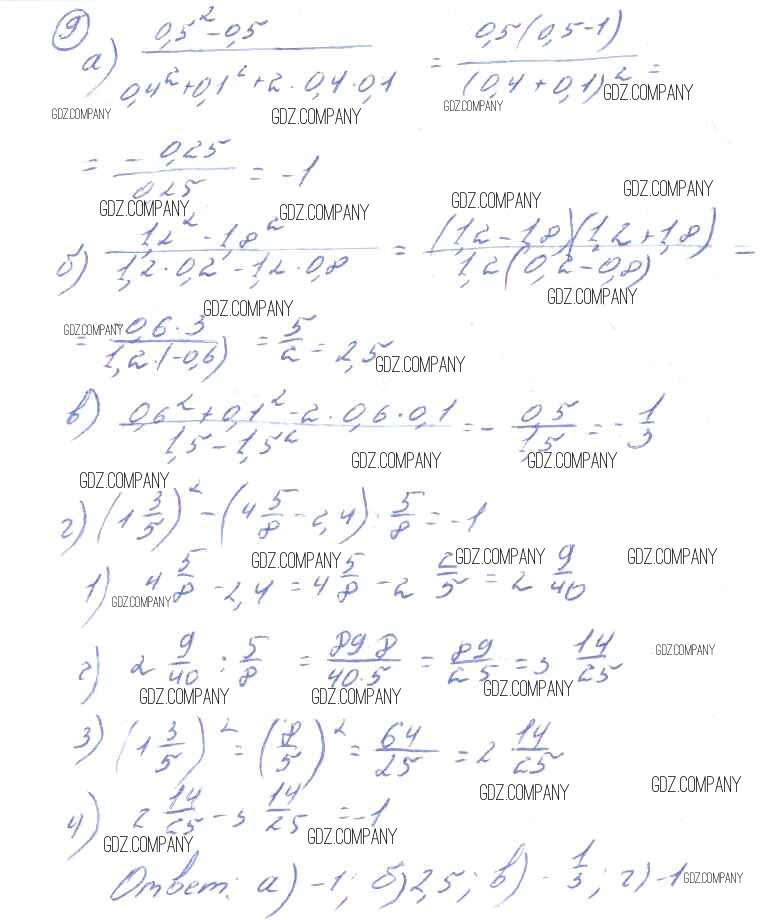 9
а) (0,5² - 0,5)/(0,4² + 0,1² + 2 · 0,4 · 0,1) = (0,5(0,5-1))/((0,4 + 0,1)²) =
GDZ.COMPANY GDZ.COMPANY GDZ.COMPANY GDZ.COMPANY
= (- 0,25)/(0,25) = -1
GDZ.COMPANY GDZ.COMPANY GDZ.COMPANY GDZ.COMPANY
б) (1,2² - 1,8²)/(1,2 · 0,2 - 1,2 · 0,8) = ((1,2 - 1,8)(1,2 + 1,8))/(1,2(0,2 - 0,8)) =
GDZ.COMPANY GDZ.COMPANY
GDZ.COMPANY
= (-0,6 · 3)/(1,2 · (-0,6)) = 5/2 = 2,5
GDZ.COMPANY
в) (0,6² + 0,1² - 2 · 0,6 · 0,1)/(1,5 - 1,5²) = - 0,5/1,5 = - 1/3
GDZ.COMPANY GDZ.COMPANY
GDZ.COMPANY
г) (1 3/5)² - (4 5/8 - 2,4) : 5/8 = -1
GDZ.COMPANY GDZ.COMPANY GDZ.COMPANY
1) 4 5/8 - 2,4 = 4 5/8 - 2 2/5 = 2 9/40
GDZ.COMPANY
2) 2 9/40 : 5/8 = (89 · 8)/(40 · 5) = 89/25 = 3 14/25
GDZ.COMPANY
GDZ.COMPANY GDZ.COMPANY GDZ.COMPANY
3) (1 3/5)² = (8/5)² = 64/25 = 2 14/25
GDZ.COMPANY GDZ.COMPANY
4) 2 14/25 - 3 14/25 = -1
GDZ.COMPANY GDZ.COMPANY
Ответ: а) -1; б) 2,5; в) - 1/3; г) -1
GDZ.COMPANY